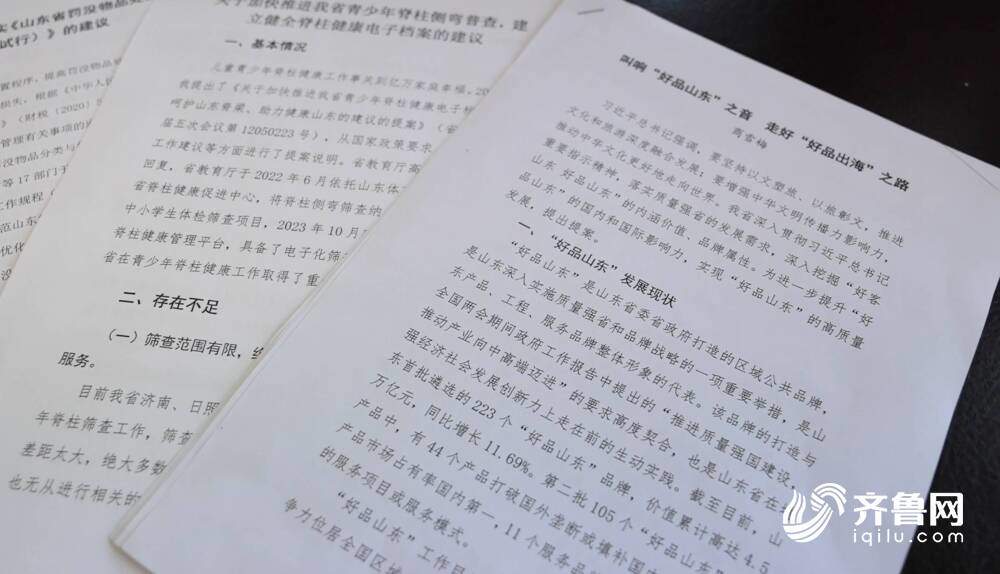 实《山东省罚没物品处
试行）》的建议
置程序，提高罚没物品
损失，根据《中华人民
》（财税〔2020〕
管理有关事项的
没物品分类与
等 17 部门
工作规程（
范山东
优化
关于加快推进我省青少年脊柱侧弯普查，建
立健全脊柱健康电子档案的建议
一、基本情况
儿童青少年脊柱健康工作事关到亿万家庭幸福。20
我提出了《关于加快推进我省青少年脊柱健康电子
呵护山东脊梁、助力健康山东的建议的提案》（省
届五次会议第 12050223 号），从国家政策要求
工作建议等方面进行了提案说明。省教育厅高
回复，省教育厅于 2022 年 6 月依托山东体
省脊柱健康促进中心，将脊柱侧弯筛查纳
中小学生体检筛查项目，2023 年 10 月
脊柱健康管理平台，具备了电子化筛
省在青少年脊柱健康工作取得了重
二、存在不足
（一）筛查范围有限，
服务。
目前我省济南、日照
年脊柱筛查工作，筛查
差距太大，绝大多数
也无从进行相关的
叫响“好品山东”之音 走好“好品出海”之路
商雪梅
习近平总书记强调，要坚持以文塑旅、以旅彰文，推进
文化和旅游深度融合发展；要增强中华文明传播力影响力，
推动中华文化更好地走向世界。我省深入贯彻习近平总书记
重要指示精神，落实质量强省的发展需求，深入挖掘“好客
山东 好品山东”的内涵价值、品牌属性。为进一步提升“好
品山东”的国内和国际影响力，实现“好品山东”的高质量
发展，提出提案。
一、“好品山东”发展现状
“好品山东”是山东省委省政府打造的区域公共品牌，
是山东深入实施质量强省和品牌战略的一项重要举措，是山
东产品、工程、服务品牌整体形象的代表。该品牌的打造与
全国两会期间政府工作报告中提出的“推进质量强国建设，
推动产业向中高端迈进”的要求高度契合，也是山东省在
强经济社会发展创新力上走在前的生动实践。截至目前，山
东首批遴选的 223 个“好品山东”品牌，价值累计高达 4.5
万亿元，同比增长 11.69%。第二批 105 个“好品山东”
产品中，有 44 个产品打破国外垄断或填补国
产品市场占有率国内第一，11 个服务品
的服务项目或服务模式。
“好品山东”工作
争力位居全国区域
齐鲁网
iqilu.com